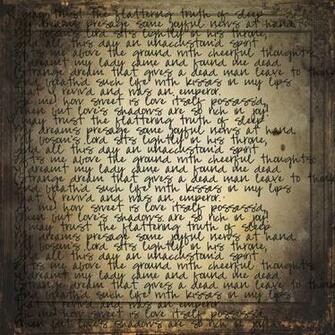 may trust the flattering truth of sleep
dreams presage some joyful news at hand
bosom's lord sits lightly in his throne,
all this day an unaccustomd spirit
ts me above the ground with cheerful thoughts.
dreamt my lady came and found me dead
range dream that gives a dead man leave to
breathd such life with kisses in my lips
revivd and was an emperor.
me how sweet is love itself possessd,
en but love's shadows are so rich in joy
may trust the flattering truth of sleep
dreams presage some joyful news at hand,
bosom's lord sits lightly in his throne,
all this day an unaccustomd spirit
ts me above the ground with cheerful thoughts.
dreamt my lady came and found me dead
range dream that gives a dead man leave to
breathd such life with kisses in my lips
revivd and was an emperor.
me how sweet is love itself possessd,
en but love's shadows are so rich in joy
may trust the flattering truth of sleep
dreams presage some joyful news at hand,
bosom's lord sits lightly in his throne,
all this day an unaccustomd spirit
ts me above the ground with cheerful thoughts.
dreamt my lady came and found me dead
range dream that gives a dead man leave to
breathd such life with kisses in my lips
revivd and was an emperor.
me how sweet is love itself possessd,
but love's shadows are so rich in joy